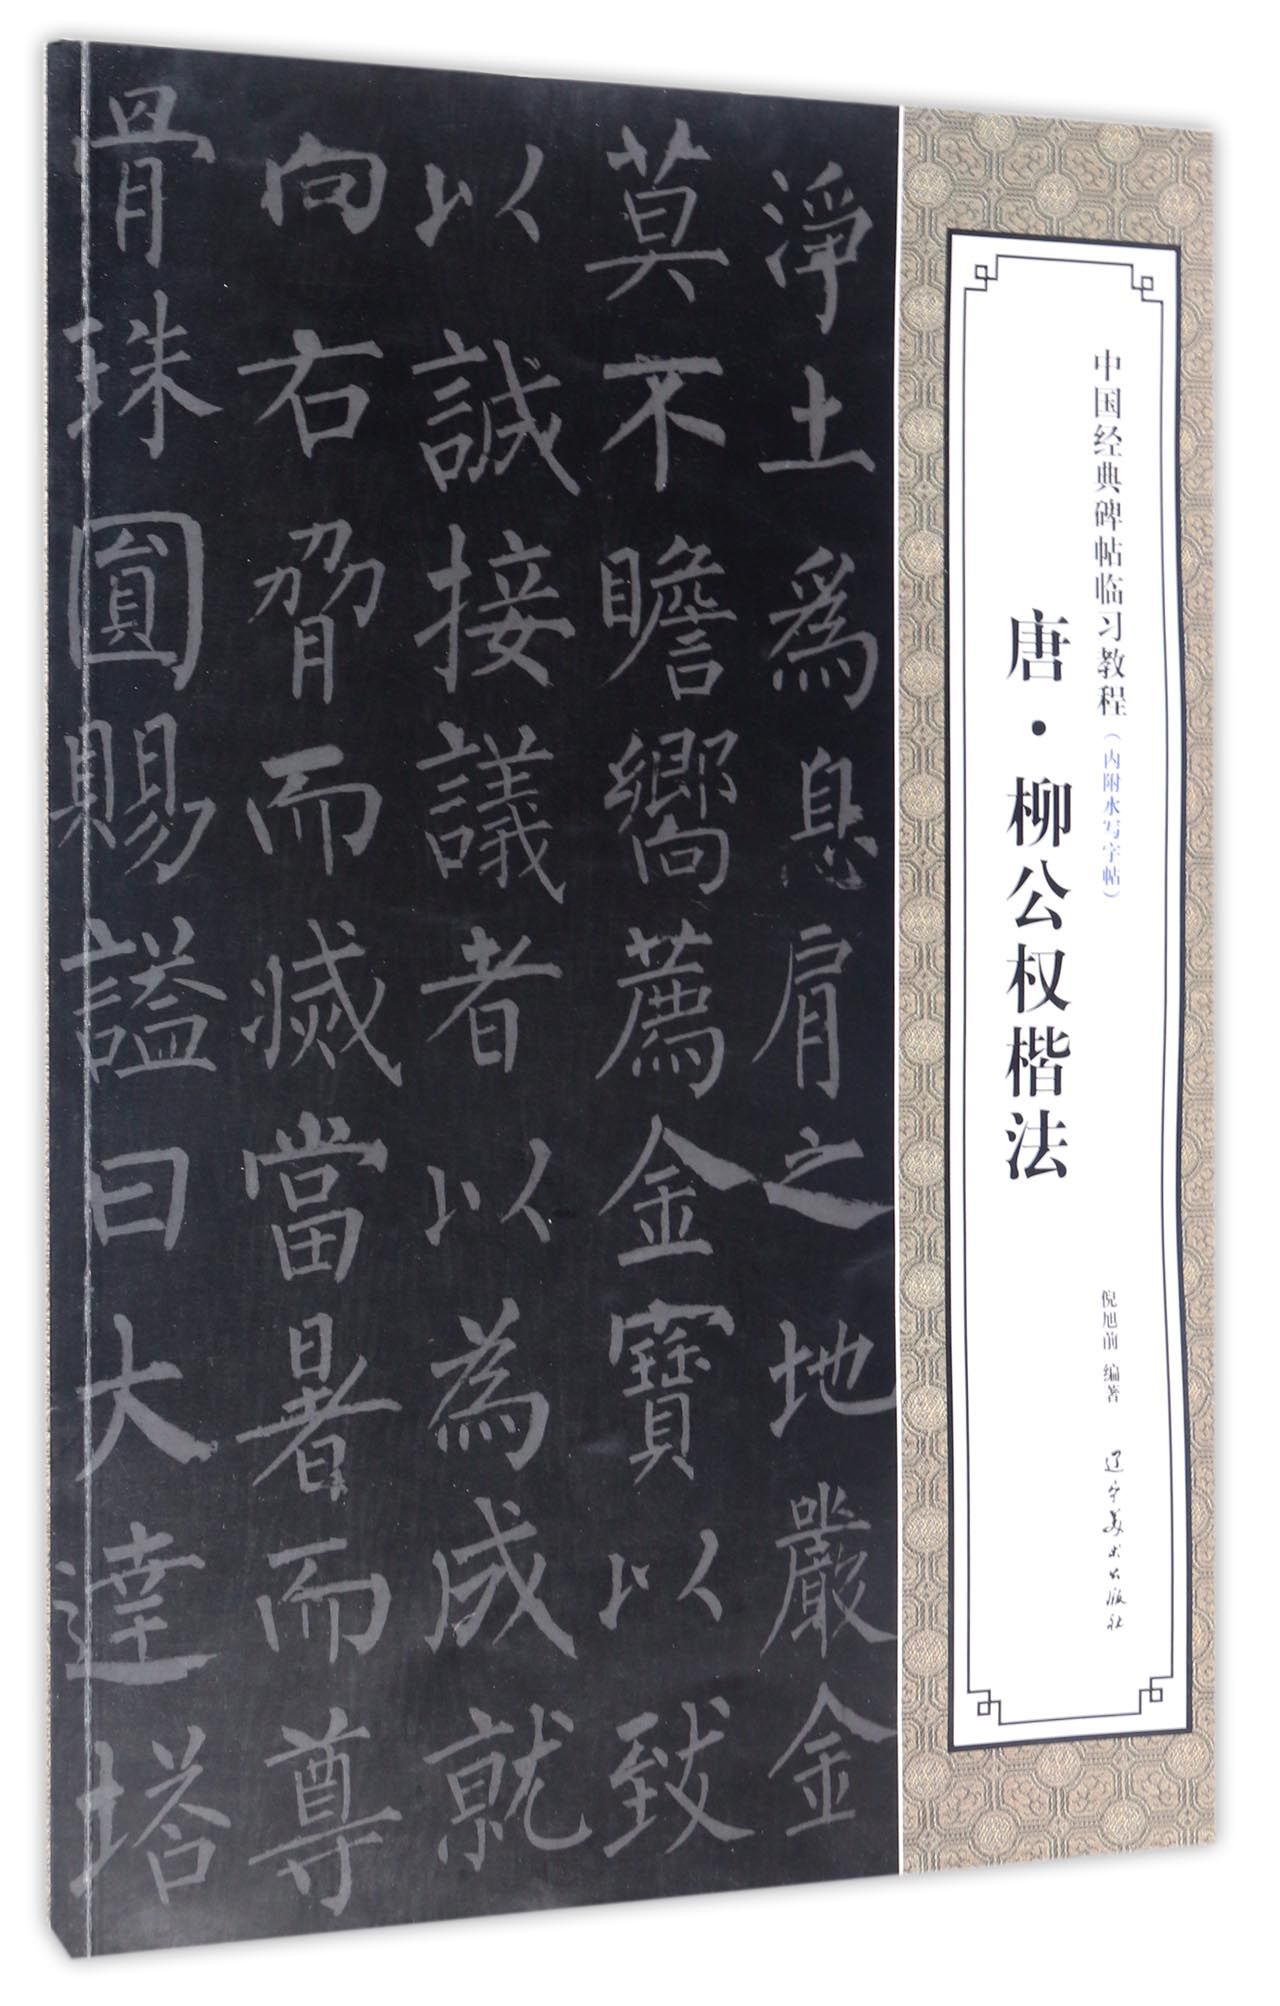 中国经典碑帖临习教程(内附水写字帖)
唐·柳公权楷法
倪旭前 编著
辽宁美术出版社
淨土為息肩之地嚴金
莫不瞻嚮薦金寶以致
以誠接議者以為成就
向右脅而滅當暑而尊
骨珠圓賜謚曰大達塔